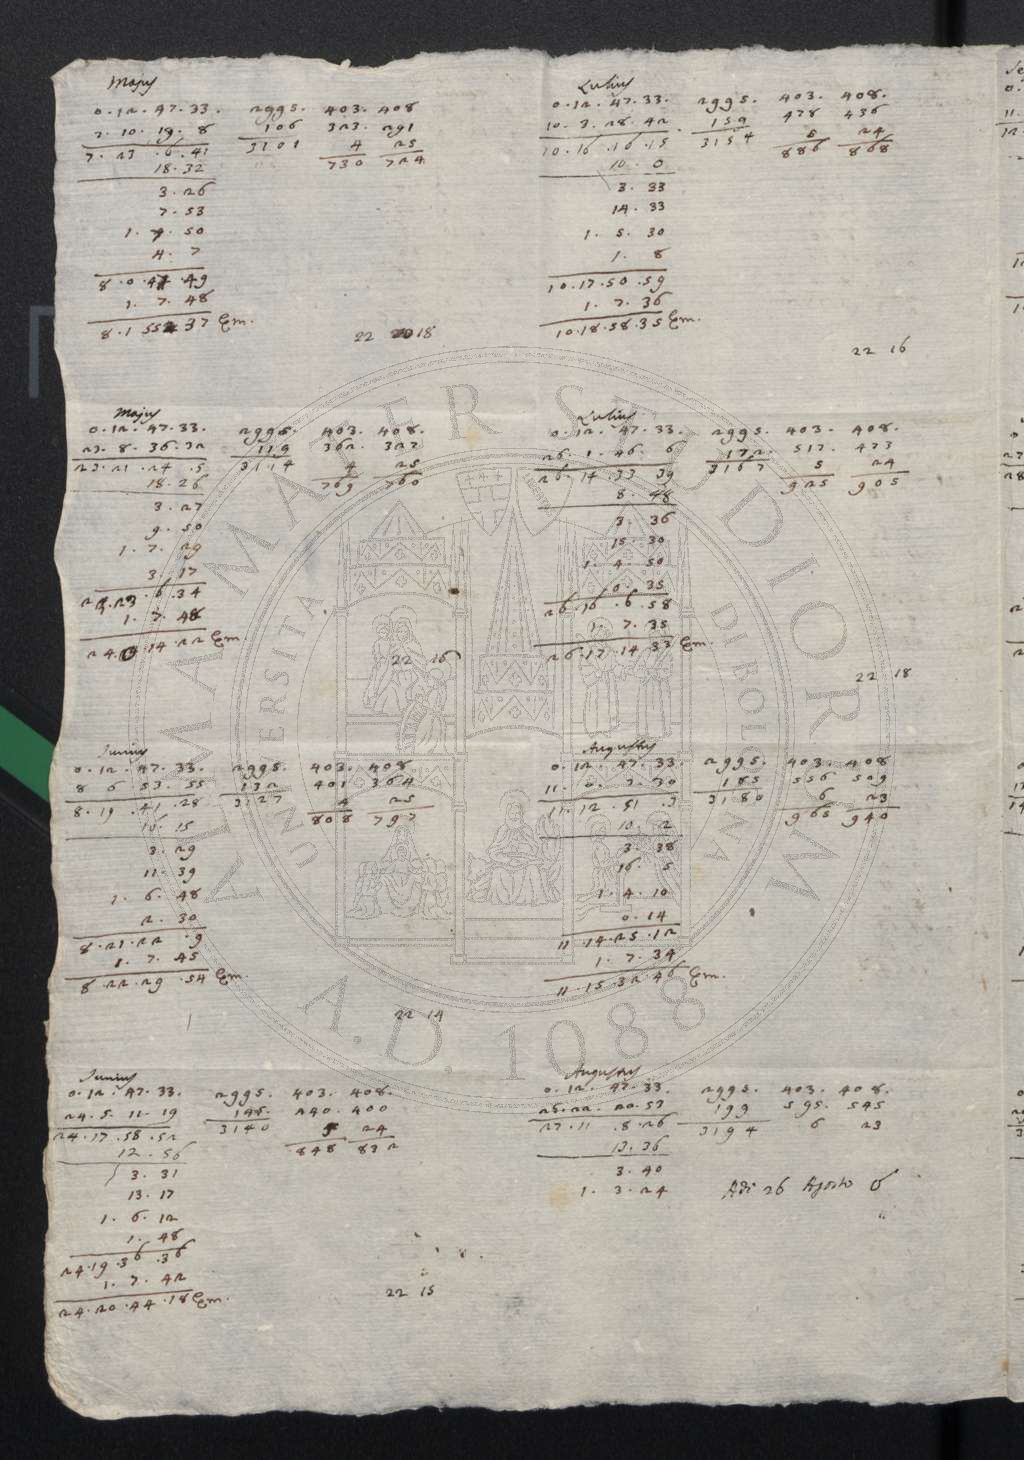 Majus
0 . 12 . 47 . 33 . 2995 . 403 . 408
7 . 10 . 19 . 8 106 323 . 291
7 . 23 . 6 . 41 3101 4 25
18 . 32 730 724
3 . 26
7 . 53
1 . 7 . 50
4 . 7
8 . 0 . 47 . 49
1 . 7 . 48
8 . 1 55 . 37 Em.
22 18
Majus
0 . 12 . 47 . 33 . 2995 . 403 . 408 .
23 . 8 . 36 . 32 119 362 . 327
23 . 21 . 24 . 5 3114 4 25
18 . 26 769 760
3 . 27
9 . 50
1 . 7 . 29
3 . 17
23 . 6 . 34
1 . 7 . 48
24 . 0 . 14 . 22 Em.
22 16
Junius
0 . 12 . 47 . 33 . 2995 . 403 . 408
8 6 53 . 55 132 401 364
8 . 19 . 41 . 28 3127 4 25
16 . 15 808 797
3 . 29
11 . 39
1 . 6 . 48
2 . 30
8 . 21 . 22 . 9
1 . 7 . 45
8 . 22 . 29 . 54 Em.
22 14
Junius
0 . 12 . 47 . 33 . 2995 . 403 . 408 .
24 . 5 . 11 . 19 145 . 440 . 400
24 . 17 . 58 . 52 3140 5 24
12 . 56 848 832
3 . 31
13 . 17
1 . 6 . 12
1 . 48
24 . 19 . 36 . 36
1 . 7 . 42
24 . 20 . 44 . 18 Em.
22 15
Iulius
0 . 12 . 47 . 33 . 2995 . 403 . 408 .
10 . 3 . 28 . 42 . 159 478 436
10 . 16 . 16 . 15 3154 5 24
10 . 0 886 868
3 . 33
14 . 33
1 . 5 . 30
1 . 8
10 . 17 . 50 . 59
1 . 7 . 36
10 . 18 . 58 . 35 Em.
22 16
Iulius
0 . 12 . 47 . 33 . 2995 . 403 . 408 .
26 . 1 . 46 . 6 172 . 517 . 473
26 . 14 . 33 39 3167 5 24
8 . 48 925 905
3 . 36
15 . 30
1 . 4 . 50
0 . 35
26 . 16 . 6 . 58
1 . 7 . 35
26 . 17 . 14 . 33 Em.
22 18
Augustus
0 . 12 . 47 . 33 . 2995 . 403 . 408
11 . 0 . 3 . 30 185 556 509
11 . 12 . 51 . 3 3180 6 23
10 . 2 965 940
3 . 38
16 . 5
1 . 4 . 10
0 . 14
11 . 14 . 25 . 12
1 . 7 . 34
11 . 15 . 32 . 46 Em.
Augustus
0 . 12 . 47 . 33 . 2995 . 403 . 408 .
26 . 22 . 20 . 53 199 595 . 545
27 . 11 . 8 . 26 3194 6 23
13 . 36
3 . 40
1 . 3 . 24 Adi 26 Agosto
ALMA MATER STUDIORUM
UNIVERSITA DI BOLOGNA
A.D. 1088